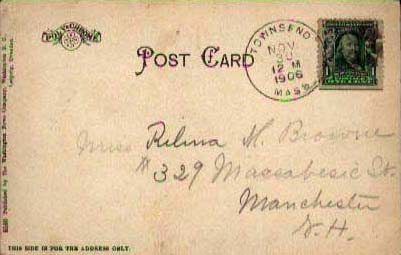 POLYCHROME
POST CARD
TOWNSEND
NOV
12 M
1906
MASS.
Miss Relina M. Browne
# 329 Massabesic St.
Manchester
N.H.
Published by The Washington News Company, Washington D. C.
Leipzig, Dresden.
THIS SIDE IS FOR THE ADDRESS ONLY.